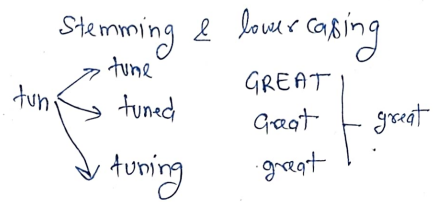 Stemming & lowercasing
tune
tun tuned
tuning
GREAT
Great
great
great